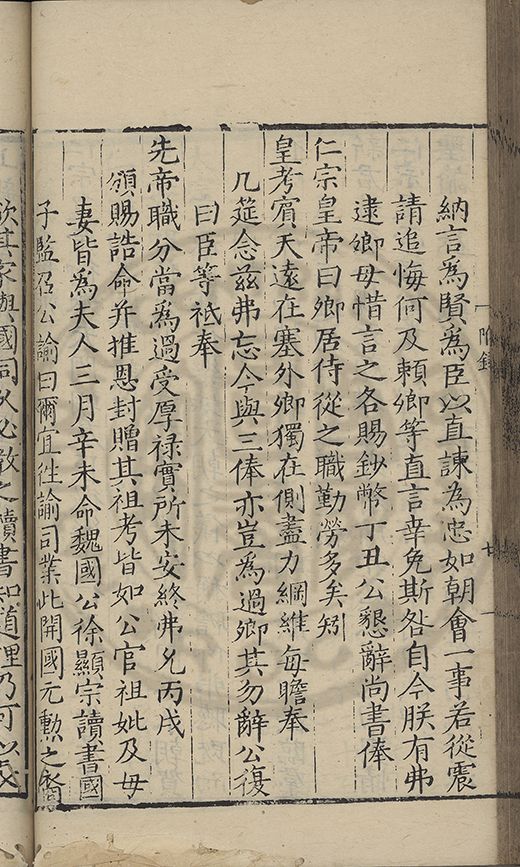 納言爲賢爲臣以直諫為忠如朝會一事若從震
請追悔何及頼卿等直言幸免斯咎自今朕有弗
逮卿毋惜言之各賜鈔幣丁丑公懇辭尚書俸
仁宗皇帝曰卿居侍從之職勤勞多矣矧
皇考賓天遠在塞外卿獨在側盡力綱維每瞻奉
几筵念茲弗忘今與三俸亦豈爲過卿其勿辭公復
曰臣等祗奉
先帝職分當爲過受厚禄實所未安終弗允丙戌
頒賜誥命并推恩封贈其祖考皆如公官祖妣及母
妻皆爲夫人三月辛未命魏國公徐顯宗讀書國
子監召公諭曰爾宜徃諭司業此開國元勲之裔
欲其家與國同久必教之讀書知道理乃可以長
附録